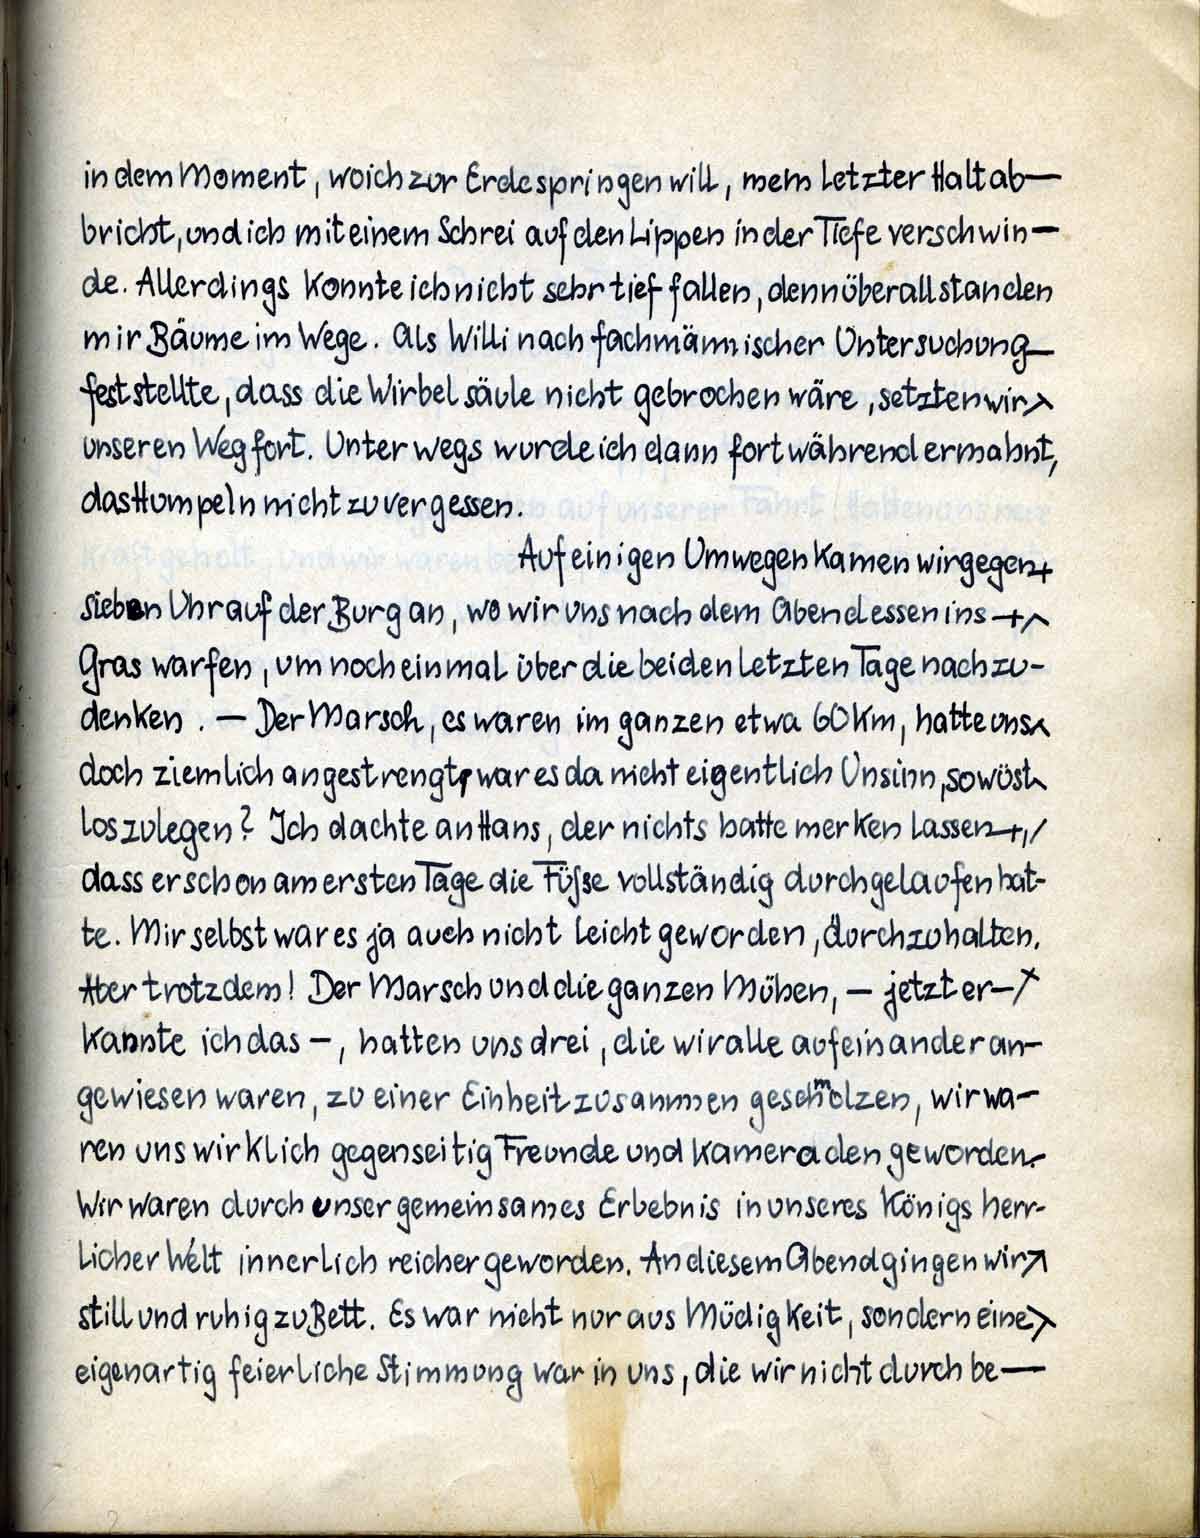 in dem Moment, wo ich zur Erde springen will, mein letzter Halt ab—
bricht, und ich mit einem Schrei auf den Lippen in der Tiefe verschwin—
de. Allerdings konnte ich nicht sehr tief fallen, denn überall standen
mir Bäume im Wege. Als Willi nach fachmännischer Untersuchung
feststellte, dass die Wirbelsäule nicht gebrochen wäre, setzten wir
unseren Weg fort. Unterwegs wurde ich dann fortwährend ermahnt,
das Humpeln nicht zu vergessen.
Auf einigen Umwegen kamen wir gegen
sieben Uhr auf der Burg an, wo wir uns nach dem Abendessen ins
Gras warfen, um noch einmal über die beiden letzten Tage nachzu-
denken. — Der Marsch, es waren im ganzen etwa 60 km, hatte uns
doch ziemlich angestrengt, war es da nicht eigentlich Unsinn, so wüst
loszulegen? Ich dachte an Hans, der nichts hatte merken lassen,
dass er schon am ersten Tage die Füsse vollständig durchgelaufen hat-
te. Mir selbst war es ja auch nicht leicht geworden, durchzuhalten.
Aber trotzdem! Der Marsch und die ganzen Mühen, — jetzt er—
kannte ich das —, hatten uns drei, die wir alle aufeinander an—
gewiesen waren, zu einer Einheit zusammen geschmolzen, wir wa—
ren uns wirklich gegenseitig Freunde und Kameraden geworden.
Wir waren durch unser gemeinsames Erbebnis in unseres Königs herr-
licher Welt innerlich reicher geworden. An diesem Abend gingen wir
still und ruhig zu Bett. Es war nicht nur aus Müdigkeit, sondern eine
eigenartig feierliche Stimmung war in uns, die wir nicht durch be—